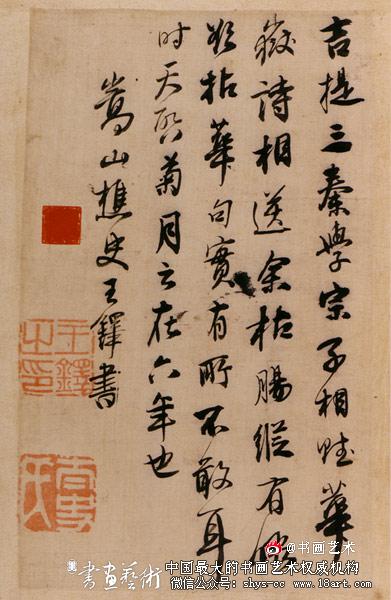 吉提三秦學宗子相賦華
嶽詩相送余枯腸縱有
拈華句實有所不敢耳
时天啓菊月云在六年也
嵩山樵史王鐸書
王鐸之印
@书画艺术
書畫藝術
中国最大的书画艺术权威机构
微信公众号：shys-cc www.18art.com